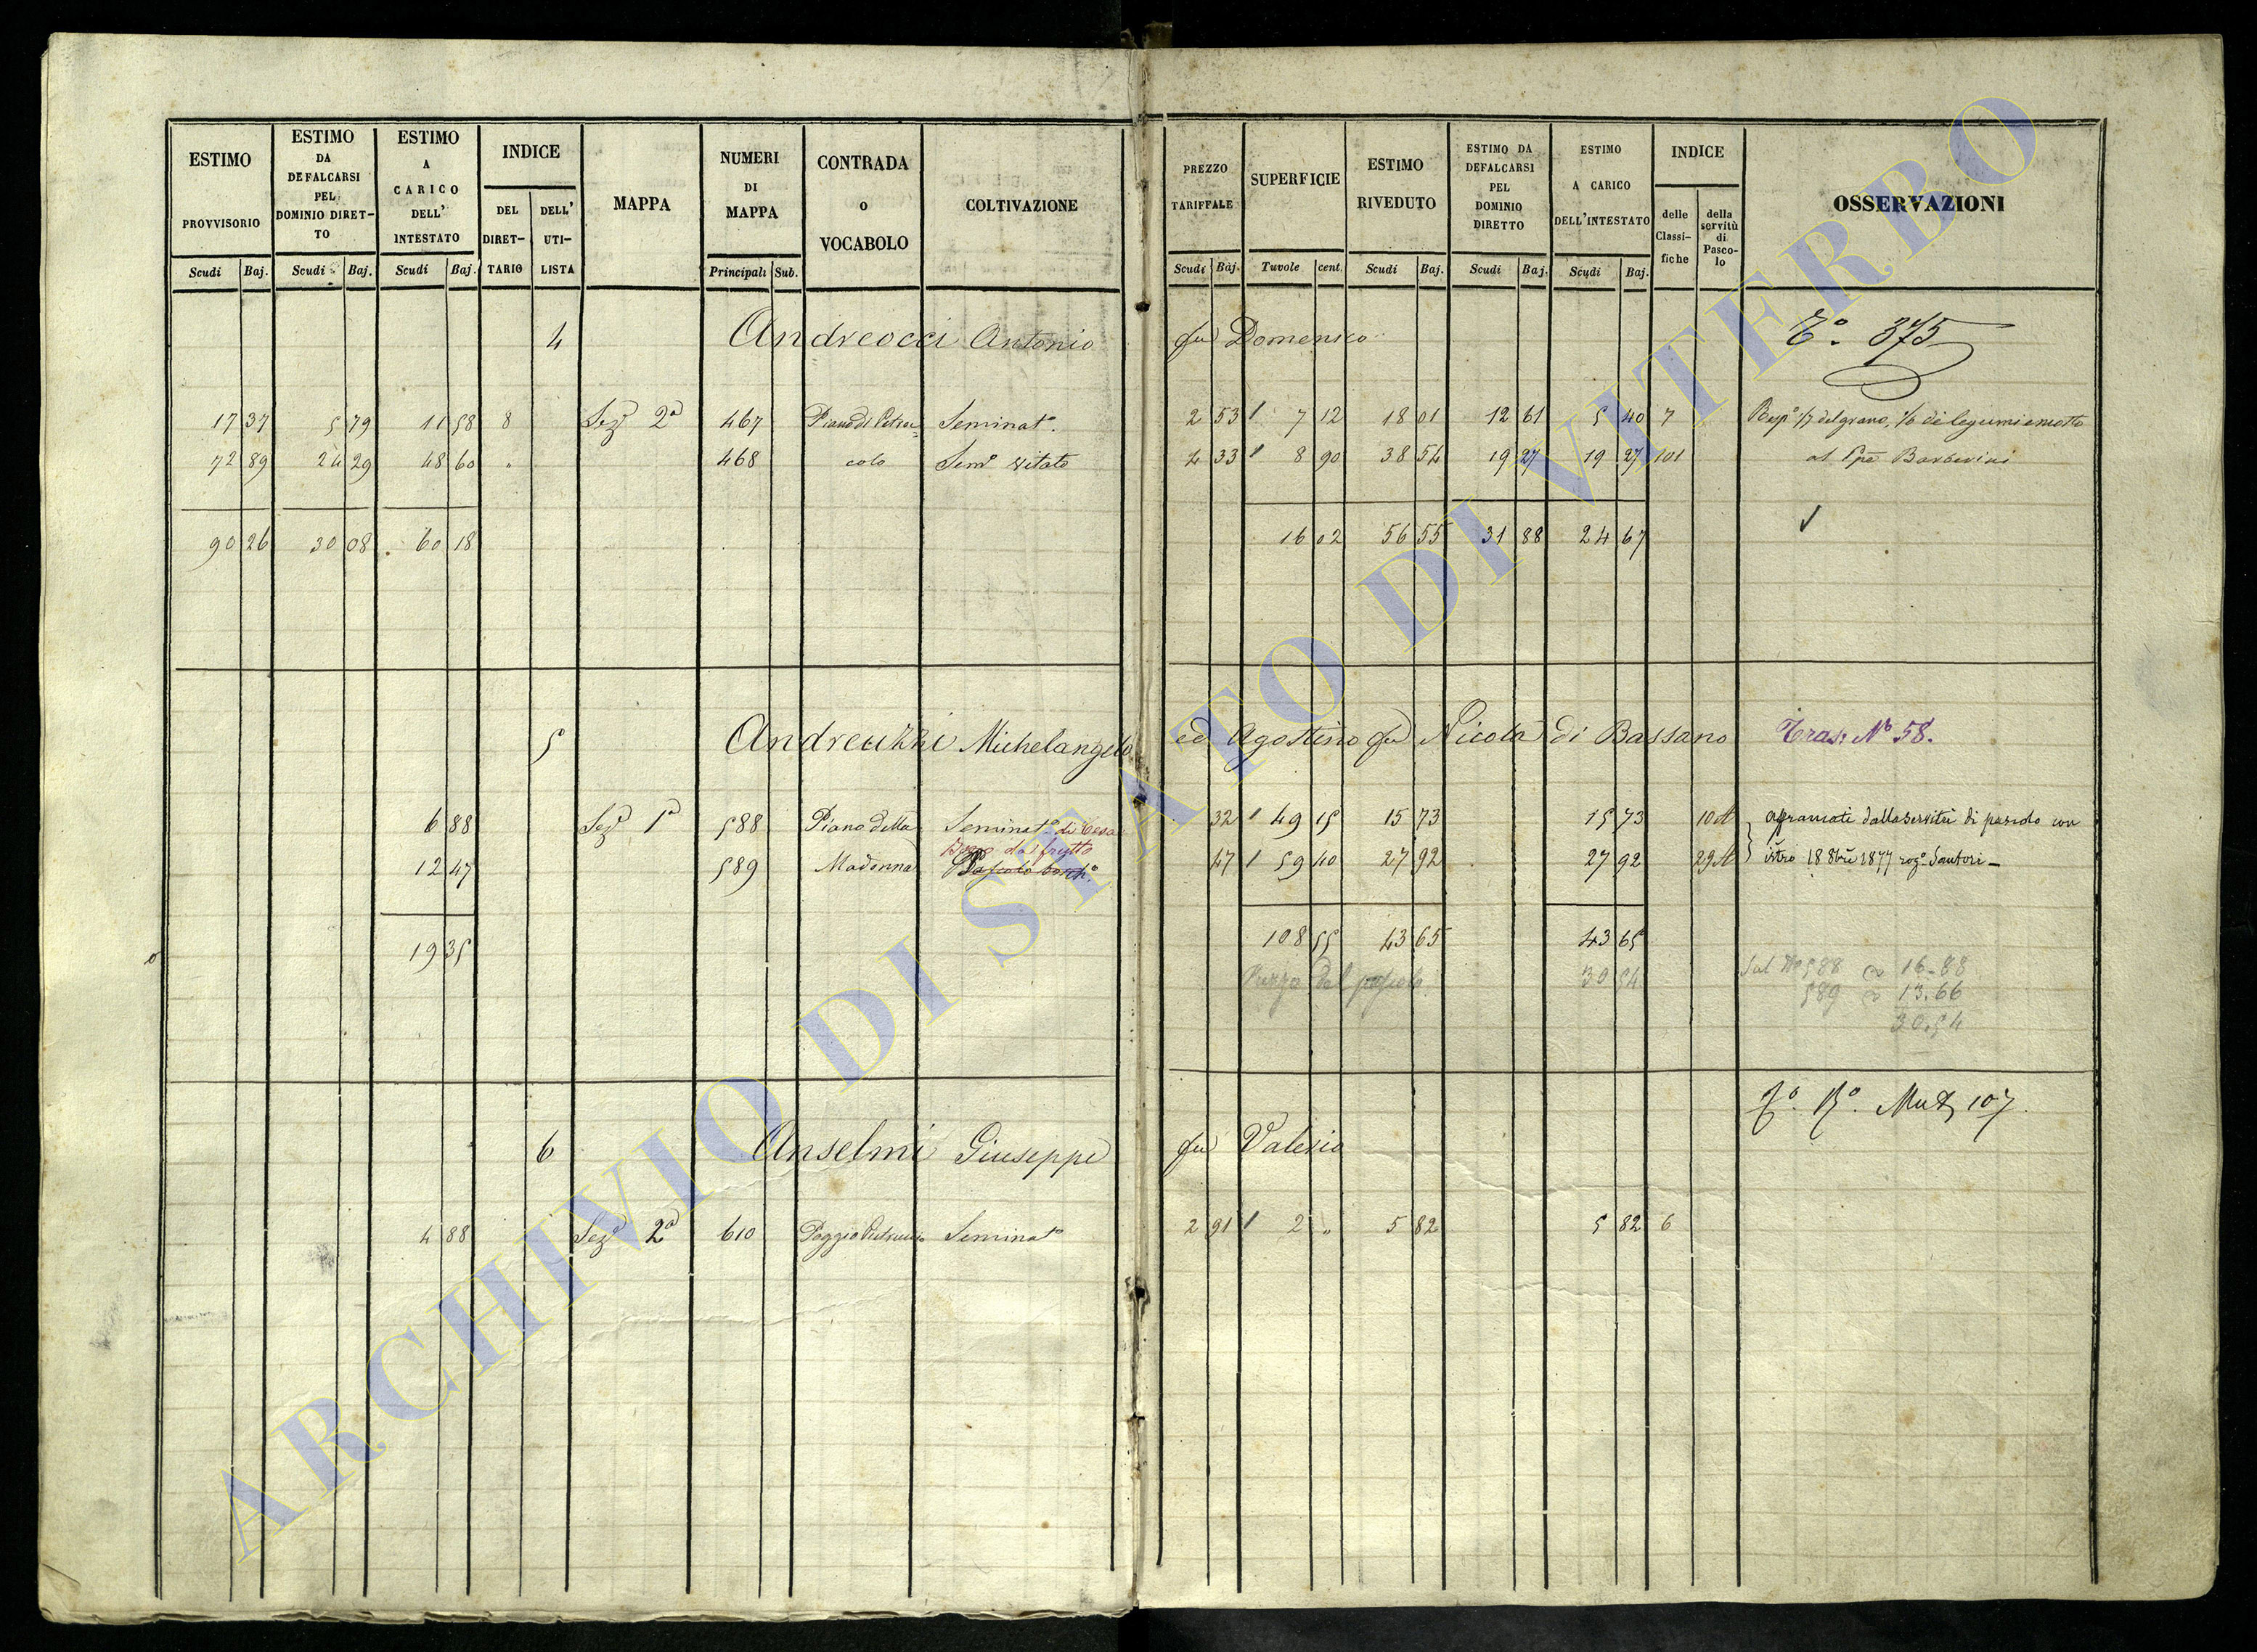 ESTIMO PROVVISORIO Scudi Baj.
ESTIMO DA DEFALCARSI PEL DOMINIO DIRETTO Scudi Baj.
ESTIMO A CARICO DELL' INTESTATO Scudi Baj.
INDICE DEL DIRETTARIO DELL' UTILISTA
MAPPA
NUMERI DI MAPPA Principali Sub.
CONTRADA o VOCABOLO
COLTIVAZIONE
PREZZO TARIFFALE Scudi Baj.
SUPERFICIE Tavole cent.
ESTIMO RIVEDUTO Scudi Baj.
ESTIMO DA DEFALCARSI PEL DOMINIO DIRETTO Scudi Baj.
ESTIMO A CARICO DELL'INTESTATO Scudi Baj.
INDICE delle Classifiche della servitù di Pascolo
OSSERVAZIONI
4 Andreocci Antonio fu Domenico To. 375
17 37 5 79 11 58 8 Sez. 2a 467 Piano di Petruc= Seminato. 2 53 7 12 18 01 12 61 5 40 7 Rispa 1/7 del grano, di legumi e
72 89 24 29 48 60 " 468 colo Semo vitato 4 33 8 90 38 54 19 27 19 27 101 al Barberini
90 26 30 08 60 18 16 02 56 55 31 88 24 67
5 Andreuzzi Michelangelo ed Agostino fu Nicola di Bassano Tras: No 58.
6 88 Sez. 1a 588 Piano della Seminato di 32 49 15 15 73 15 73 10 A affrancati dalla servitù di pascolo con
da frutto
12 47 589 Madonna Pascolo 47 59 40 27 92 27 92 29 A istro 18 8bre 1877 rogo Santori
19 35 108 55 43 65 43 65
Prezzo del pascolo 30 54
Sul No 588 16.88
589 13.66
30.54
Mut 107
6 Anselmi Giuseppe fu Valerio
4 88 Sez. 2a 610 Poggio Petruccio Seminato 2 91 2 " 5 82 5 82 6
ARCHIVIO DI STATO DI VITERBO